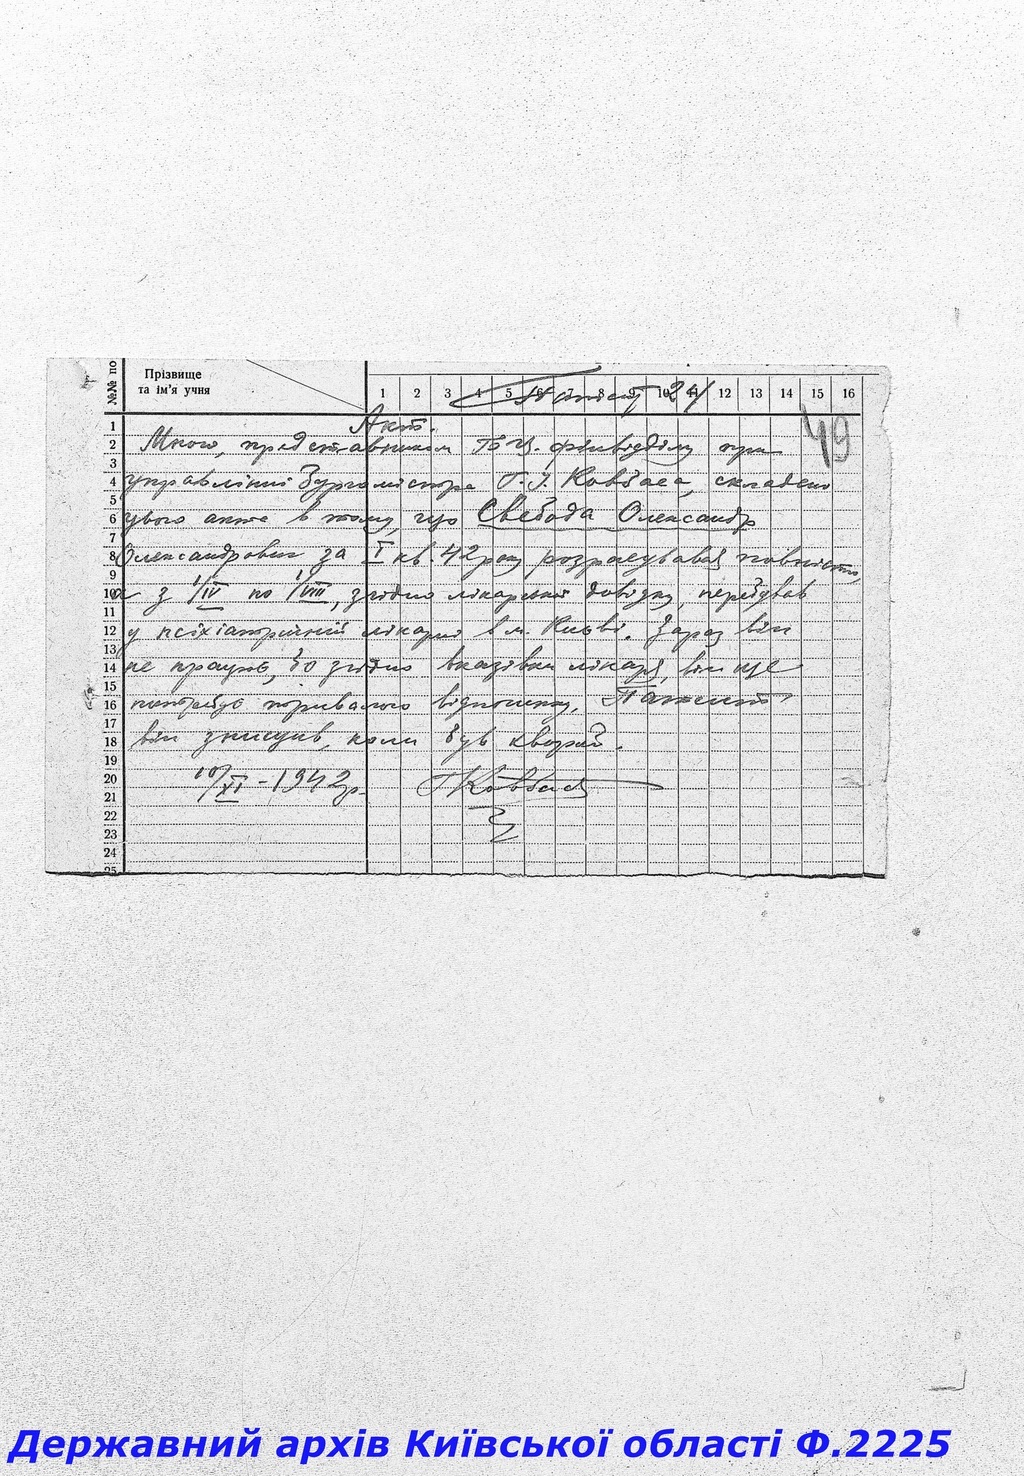 №№ по
Прізвище
та ім'я учня
1 2 3 4 5 6 7 8 9 10 11 12 13 14 15 16
24
49
Акт.
Мною, представником БЦ. фінвідділу при
управлінні Бургомістра Г. І. Ковбаса, складено
цього акта в тому, що Свебода Олександр
Олександрович за I кв. 42 року розрахувався повністю,
а з 1/IV по 1/VIII, згідно лікарської довідки, перебував
у псіхіатричній лікарні в м. Києві. Зараз він
не працює, бо згідно вказівки лікаря, він ще
потребує тривалого відпочинку. Патент
він знищив, коли був хворий.
10/XI - 1942р. ГКовбаса
1
2
3
4
5
6
7
8
9
10
11
12
13
14
15
16
17
18
19
20
21
22
23
24
25
Державний архів Київської області Ф.2225